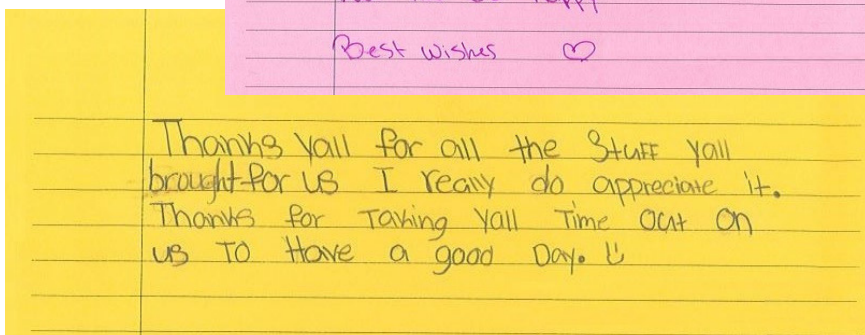 Best wishes ♡
Thanks yall for all the Stuff yall
brought for us I really do appreciate it.
Thanks for Taking yall Time Out On
us To Have a good Day. ت